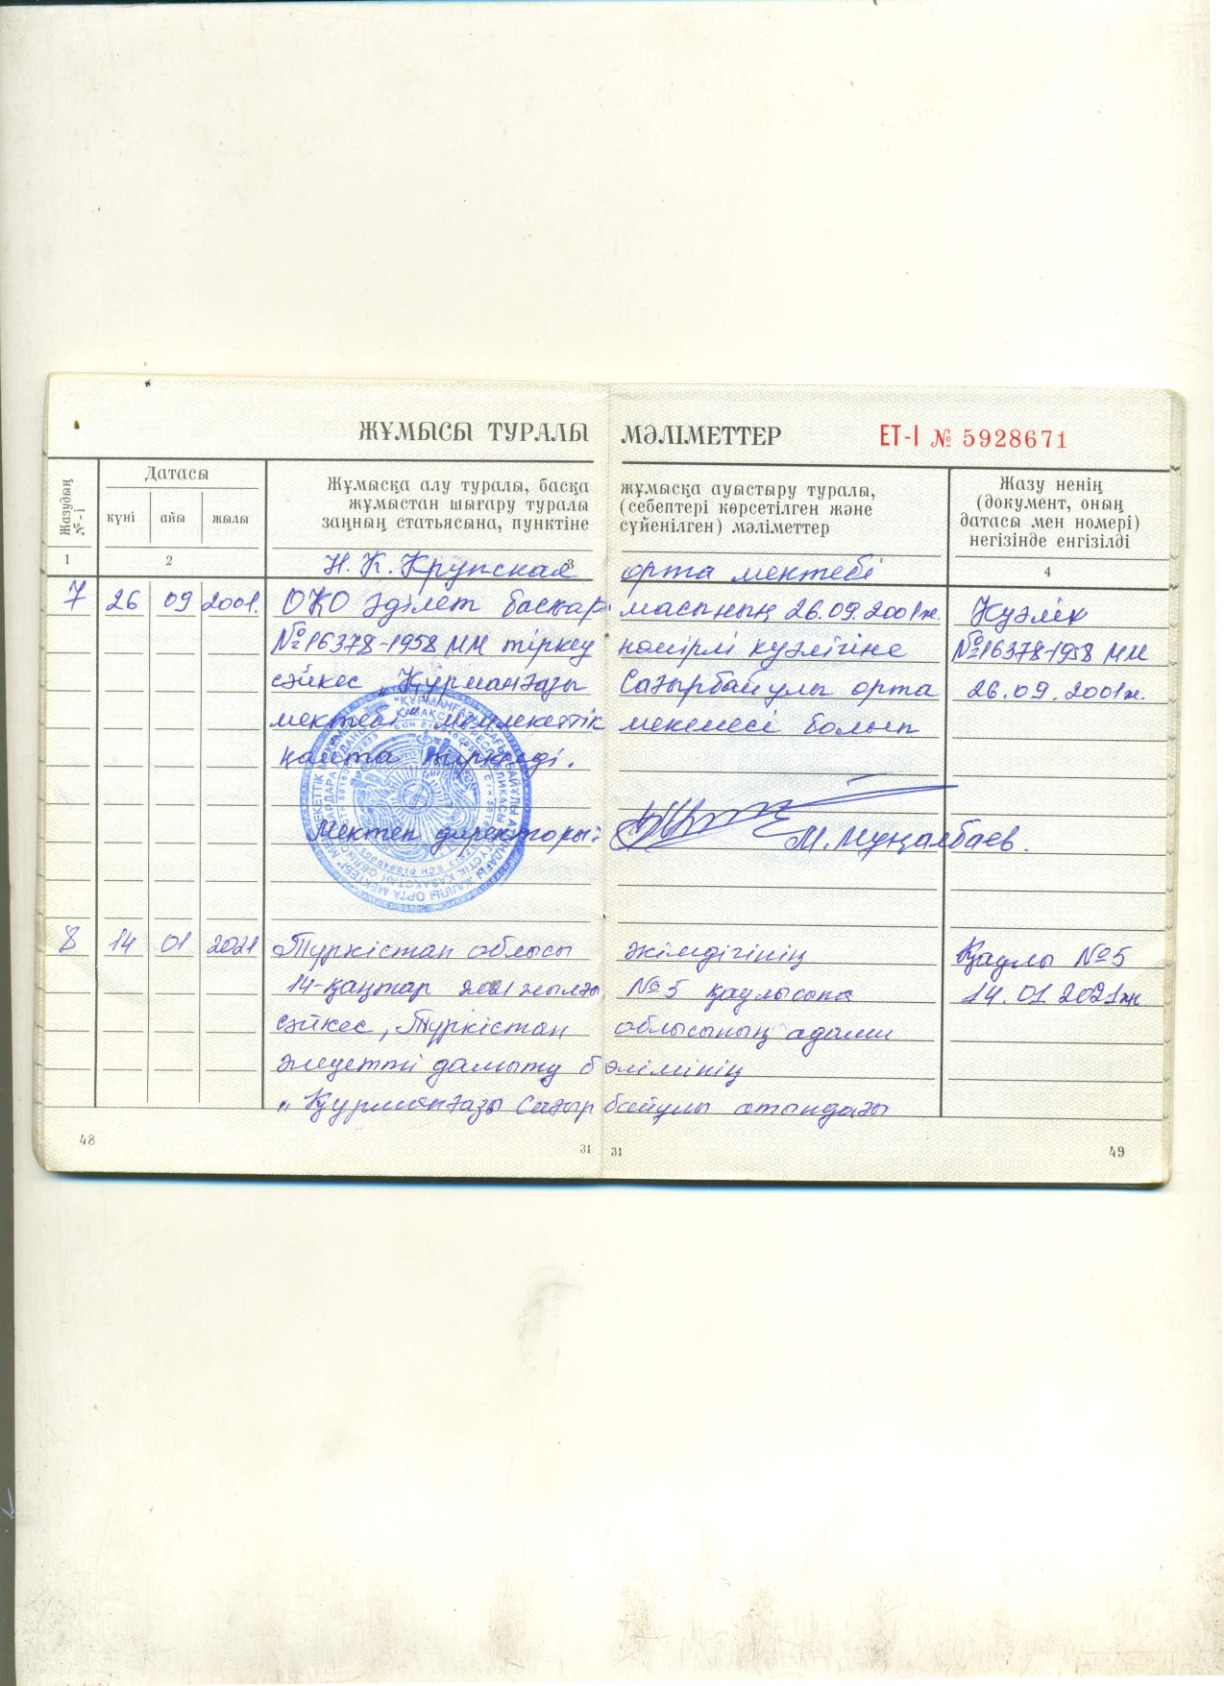 ЖҰМЫСЫ ТУРАЛЫ МӘЛІМЕТТЕР ЕТ-I № 5928671
Жазудың №-і
Датасы
күні айы жылы
Жұмысқа алу туралы, басқа жұмысқа ауыстыру туралы,
жұмыстан шығару туралы (себептері көрсетілген және
заңның статьясына, пунктіне сүйенілген) мәліметтер
Жазу ненің
(документ, оның
датасы мен номері)
негізінде енгізілді
1 2 3 4
Н.К.Крупская орта мектебі
7 26 09 2001. ОҚО Әділет басқармасының 26.09.2001ж. Куәлік
№16378-1958 ММ тіркеу нөмірлі куәлігіне №16378-1958 ММ
сәйкес „Құрманғазы Сағырбайұлы орта 26.09.2001ж.
мектебі" мемлекеттік мекемесі болып
қайта тіркелді.
Мектеп директоры: М.Мұңалбаев.
8 14 01 2021 Түркістан облысы әкімдігінің Қаулы №5
14-қаңтар 2021 жылғы №5 қаулысына 14.01.2021ж
сәйкес, Түркістан облысының адами
әлеуетті дамыту бөлімінің
„Құрманғазы Сағырбайұлы атындағы
48 31 31 49